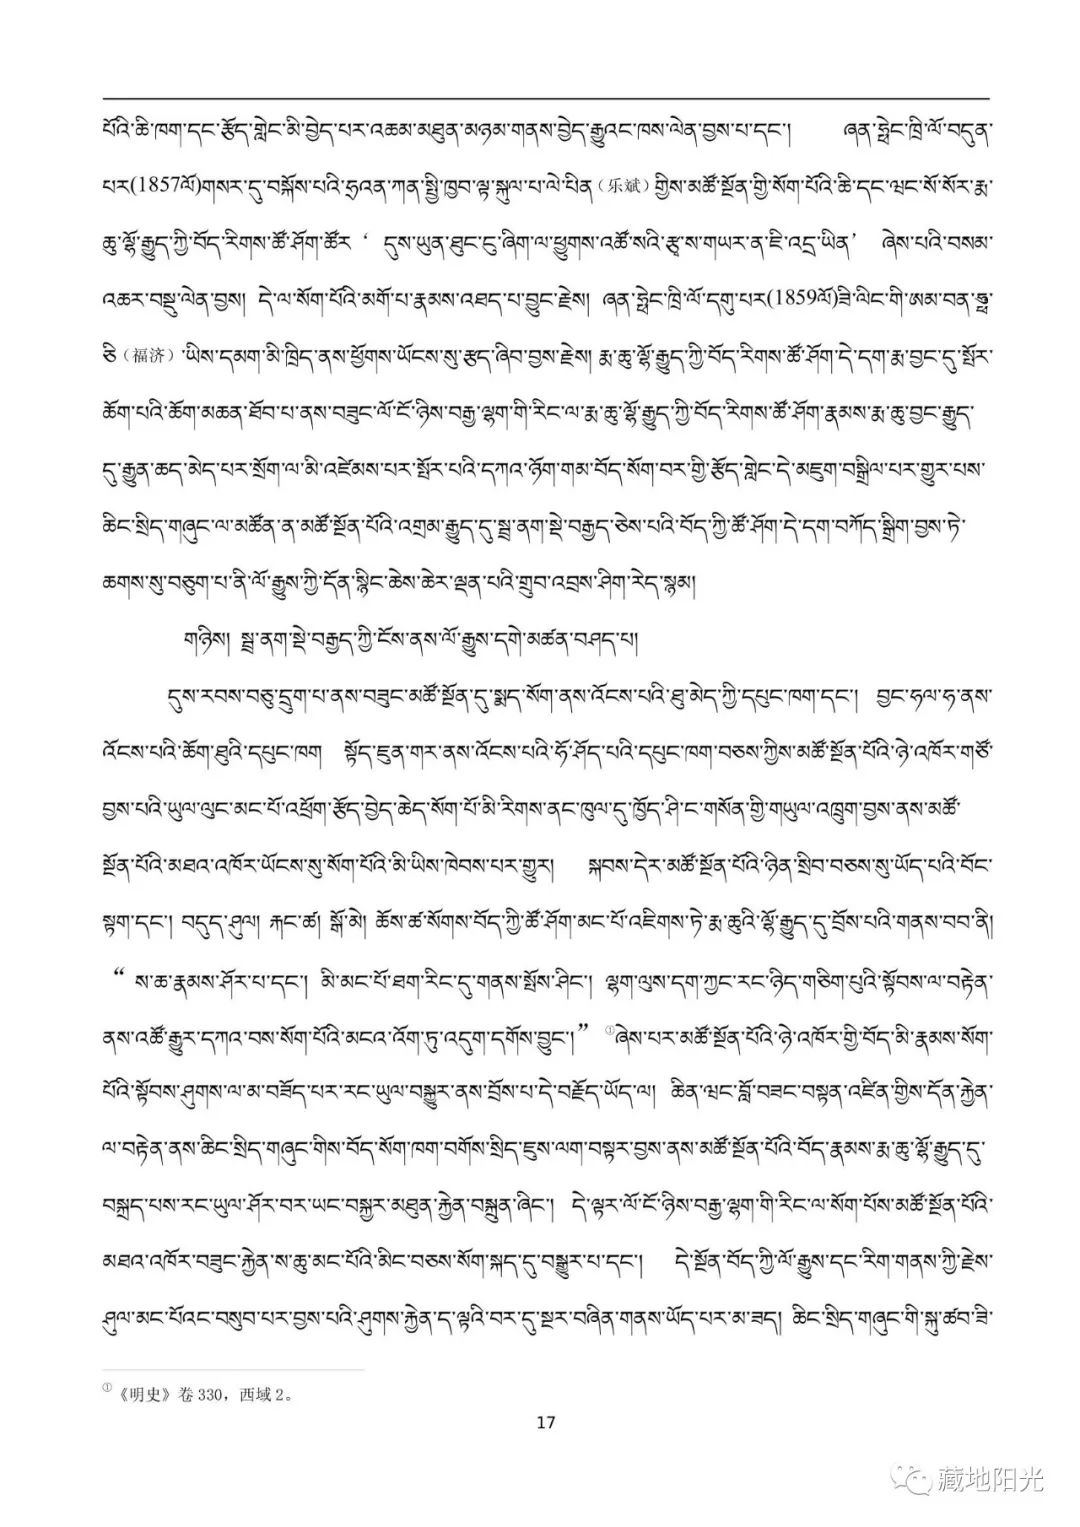 པོའི་ཆི་ཁག་དང་རྩོད་གླེང་མི་བྱེད་པར་འཆམ་མཐུན་མཉམ་གནས་བྱེད་རྒྱུའང་ཁས་ལེན་བྱས་པ་དང་། ཞན་ཧྥེང་ཁྲི་ལོ་བདུན་
པར(1857ལོ)གསར་དུ་བསྐོས་པའི་ཧྲའན་ཀན་སྤྱི་ཁྱབ་ལྟ་སྐུལ་པ་ལེ་པིན(乐斌)གྱིས་མཚོ་སྔོན་གྱི་སོག་པོའི་ཆི་དང་ཝང་སོ་སོར་རྨ་
ཆུ་ལྷོ་རྒྱུད་ཀྱི་བོད་རིགས་ཚོ་ཤོག་ཚོར ‘ དུས་ཡུན་ཐུང་ངུ་ཞིག་ལ་ཕྱུགས་འཚོ་སའི་རྩྭ་ས་གཡར་ན་ཇི་འདྲ་ཡིན’ ཞེས་པའི་བསམ་
འཆར་བསྡུ་ལེན་བྱས། དེ་ལ་སོག་པོའི་མགོ་པ་རྣམས་འཐད་པ་བྱུང་རྗེས། ཞན་ཧྥེང་ཁྲི་ལོ་དགུ་པར(1859ལོ)ཟི་ལིང་གི་ཨམ་བན་ཧྥུ་
ཅི(福济)་ཡིས་དམག་མི་ཁྲིད་ནས་ཕྱོགས་ཡོངས་སུ་རྩད་ཞིབ་བྱས་རྗེས། རྨ་ཆུ་ལྷོ་རྒྱུད་ཀྱི་བོད་རིགས་ཚོ་ཤོག་དེ་དག་རྨ་བྱང་དུ་སྤོར་
ཆོག་པའི་ཆོག་མཆན་ཐོབ་པ་ནས་བཟུང་ལོ་ངོ་ཉིས་བརྒྱ་ལྷག་གི་རིང་ལ་རྨ་ཆུ་ལྷོ་རྒྱུད་ཀྱི་བོད་རིགས་ཚོ་ཤོག་རྣམས་རྨ་ཆུ་བྱང་རྒྱུད་
དུ་རྒྱུན་ཆད་མེད་པར་སྲོག་ལ་མི་འཛེམས་པར་སྤོར་པའི་དཀའ་ཉོག་གམ་བོད་སོག་བར་གྱི་རྩོད་གླེང་དེ་མཇུག་བསྒྲིལ་པར་གྱུར་པས་
ཆིང་སྲིད་གཞུང་ལ་མཚོན་ན་མཚོ་སྔོན་པོའི་འགྲམ་རྒྱུད་དུ་སྦྲ་ནག་སྡེ་བརྒྱད་ཅེས་པའི་བོད་ཀྱི་ཚོ་ཤོག་དེ་དག་བཀོད་སྒྲིག་བྱས་ཏེ་
ཆགས་སུ་བཅུག་པ་ནི་ལོ་རྒྱུས་ཀྱི་དོན་སྙིང་ཆེས་ཆེར་ལྡན་པའི་གྲུབ་འབྲས་ཤིག་རེད་སྙམ།
གཉིས། སྦྲ་ནག་སྡེ་བརྒྱད་ཀྱི་ངོས་ནས་ལོ་རྒྱུས་དགེ་མཚན་བཤད་པ།
དུས་རབས་བཅུ་དྲུག་པ་ནས་བཟུང་མཚོ་སྔོན་དུ་སྨད་སོག་ནས་འོངས་པའི་ཐུ་མེད་ཀྱི་དཔུང་ཁག་དང་། བྱང་ཧལ་ཧ་ནས་
འོངས་པའི་ཆོག་ཐུའི་དཔུང་ཁག སྟོད་ཇུན་གར་ནས་འོངས་པའི་ཧོ་ཤོད་པའི་དཔུང་ཁག་བཅས་ཀྱིས་མཚོ་སྔོན་པོའི་ཉེ་འཁོར་གཙོ་
བྱས་པའི་ཡུལ་ལུང་མང་པོ་འཕྲོག་རྩོད་བྱེད་ཆེད་སོག་པོ་མི་རིགས་ནང་ཁུལ་དུ་ཁྱོད་ཤི་ང་གསོན་གྱི་གཡུལ་འཁྲུག་བྱས་ནས་མཚོ་
སྔོན་པོའི་མཐའ་འཁོར་ཡོངས་སུ་སོག་པོའི་མི་ཡིས་ཁེབས་པར་གྱུར། སྐབས་དེར་མཚོ་སྔོན་པོའི་ཉིན་སྲིབ་བཅས་སུ་ཡོད་པའི་བོང་
སྟག་དང་། བདུད་ཤུལ། རྐང་ཚ། སྒོ་མེ། ཆོས་ཚ་སོགས་བོད་ཀྱི་ཚོ་ཤོག་མང་པོ་འཇིགས་ཏེ་རྨ་ཆུའི་ལྷོ་རྒྱུད་དུ་བྲོས་པའི་གནས་བབ་ནི།
“ ས་ཆ་རྣམས་ཤོར་པ་དང་། མི་མང་པོ་ཐག་རིང་དུ་གནས་སྤོས་ཤིང་། ལྷག་ལུས་དག་ཀྱང་རང་ཉིད་གཅིག་པུའི་སྟོབས་ལ་བརྟེན་
ནས་འཚོ་རྒྱུར་དཀའ་བས་སོག་པོའི་མངའ་འོག་ཏུ་འདུག་དགོས་བྱུང་།” ①ཞེས་པར་མཚོ་སྔོན་པོའི་ཉེ་འཁོར་གྱི་བོད་མི་རྣམས་སོག་
པོའི་སྟོབས་ཤུགས་ལ་མ་བཟོད་པར་རང་ཡུལ་བསྐྱུར་ནས་བྲོས་པ་དེ་བརྗོད་ཡོད་ལ། ཆིན་ཝང་བློ་བཟང་བསྟན་འཛིན་གྱིས་དོན་རྐྱེན་
ལ་བརྟེན་ནས་ཆིང་སྲིད་གཞུང་གིས་བོད་སོག་ཁག་བགོས་སྲིད་ཇུས་ལག་བསྟར་བྱས་ནས་མཚོ་སྔོན་པོའི་བོད་རྣམས་རྨ་ཆུ་ལྷོ་རྒྱུད་དུ་
བསྐྲད་པས་རང་ཡུལ་ཤོར་བར་ཡང་བསྐྱར་མཐུན་རྐྱེན་བསྐྲུན་ཞིང་། དེ་ལྟར་ལོ་ངོ་ཉིས་བརྒྱ་ལྷག་གི་རིང་ལ་སོག་པོས་མཚོ་སྔོན་པོའི་
མཐའ་འཁོར་བཟུང་རྐྱེན་ས་ཆུ་མང་པོའི་མིང་བཅས་སོག་སྐད་དུ་བསྒྱུར་པ་དང་། དེ་སྔོན་བོད་ཀྱི་ལོ་རྒྱུས་དང་རིག་གནས་ཀྱི་རྗེས་
ཤུལ་མང་པོའང་བསུབ་པར་བྱས་པའི་ཤུགས་རྐྱེན་ད་ལྟའི་བར་དུ་སྔར་བཞིན་གནས་ཡོད་པར་མ་ཟད། ཆིང་སྲིད་གཞུང་གི་སྐུ་ཚབ་ཟི་
①《明史》卷 330，西域 2。
17
藏地阳光